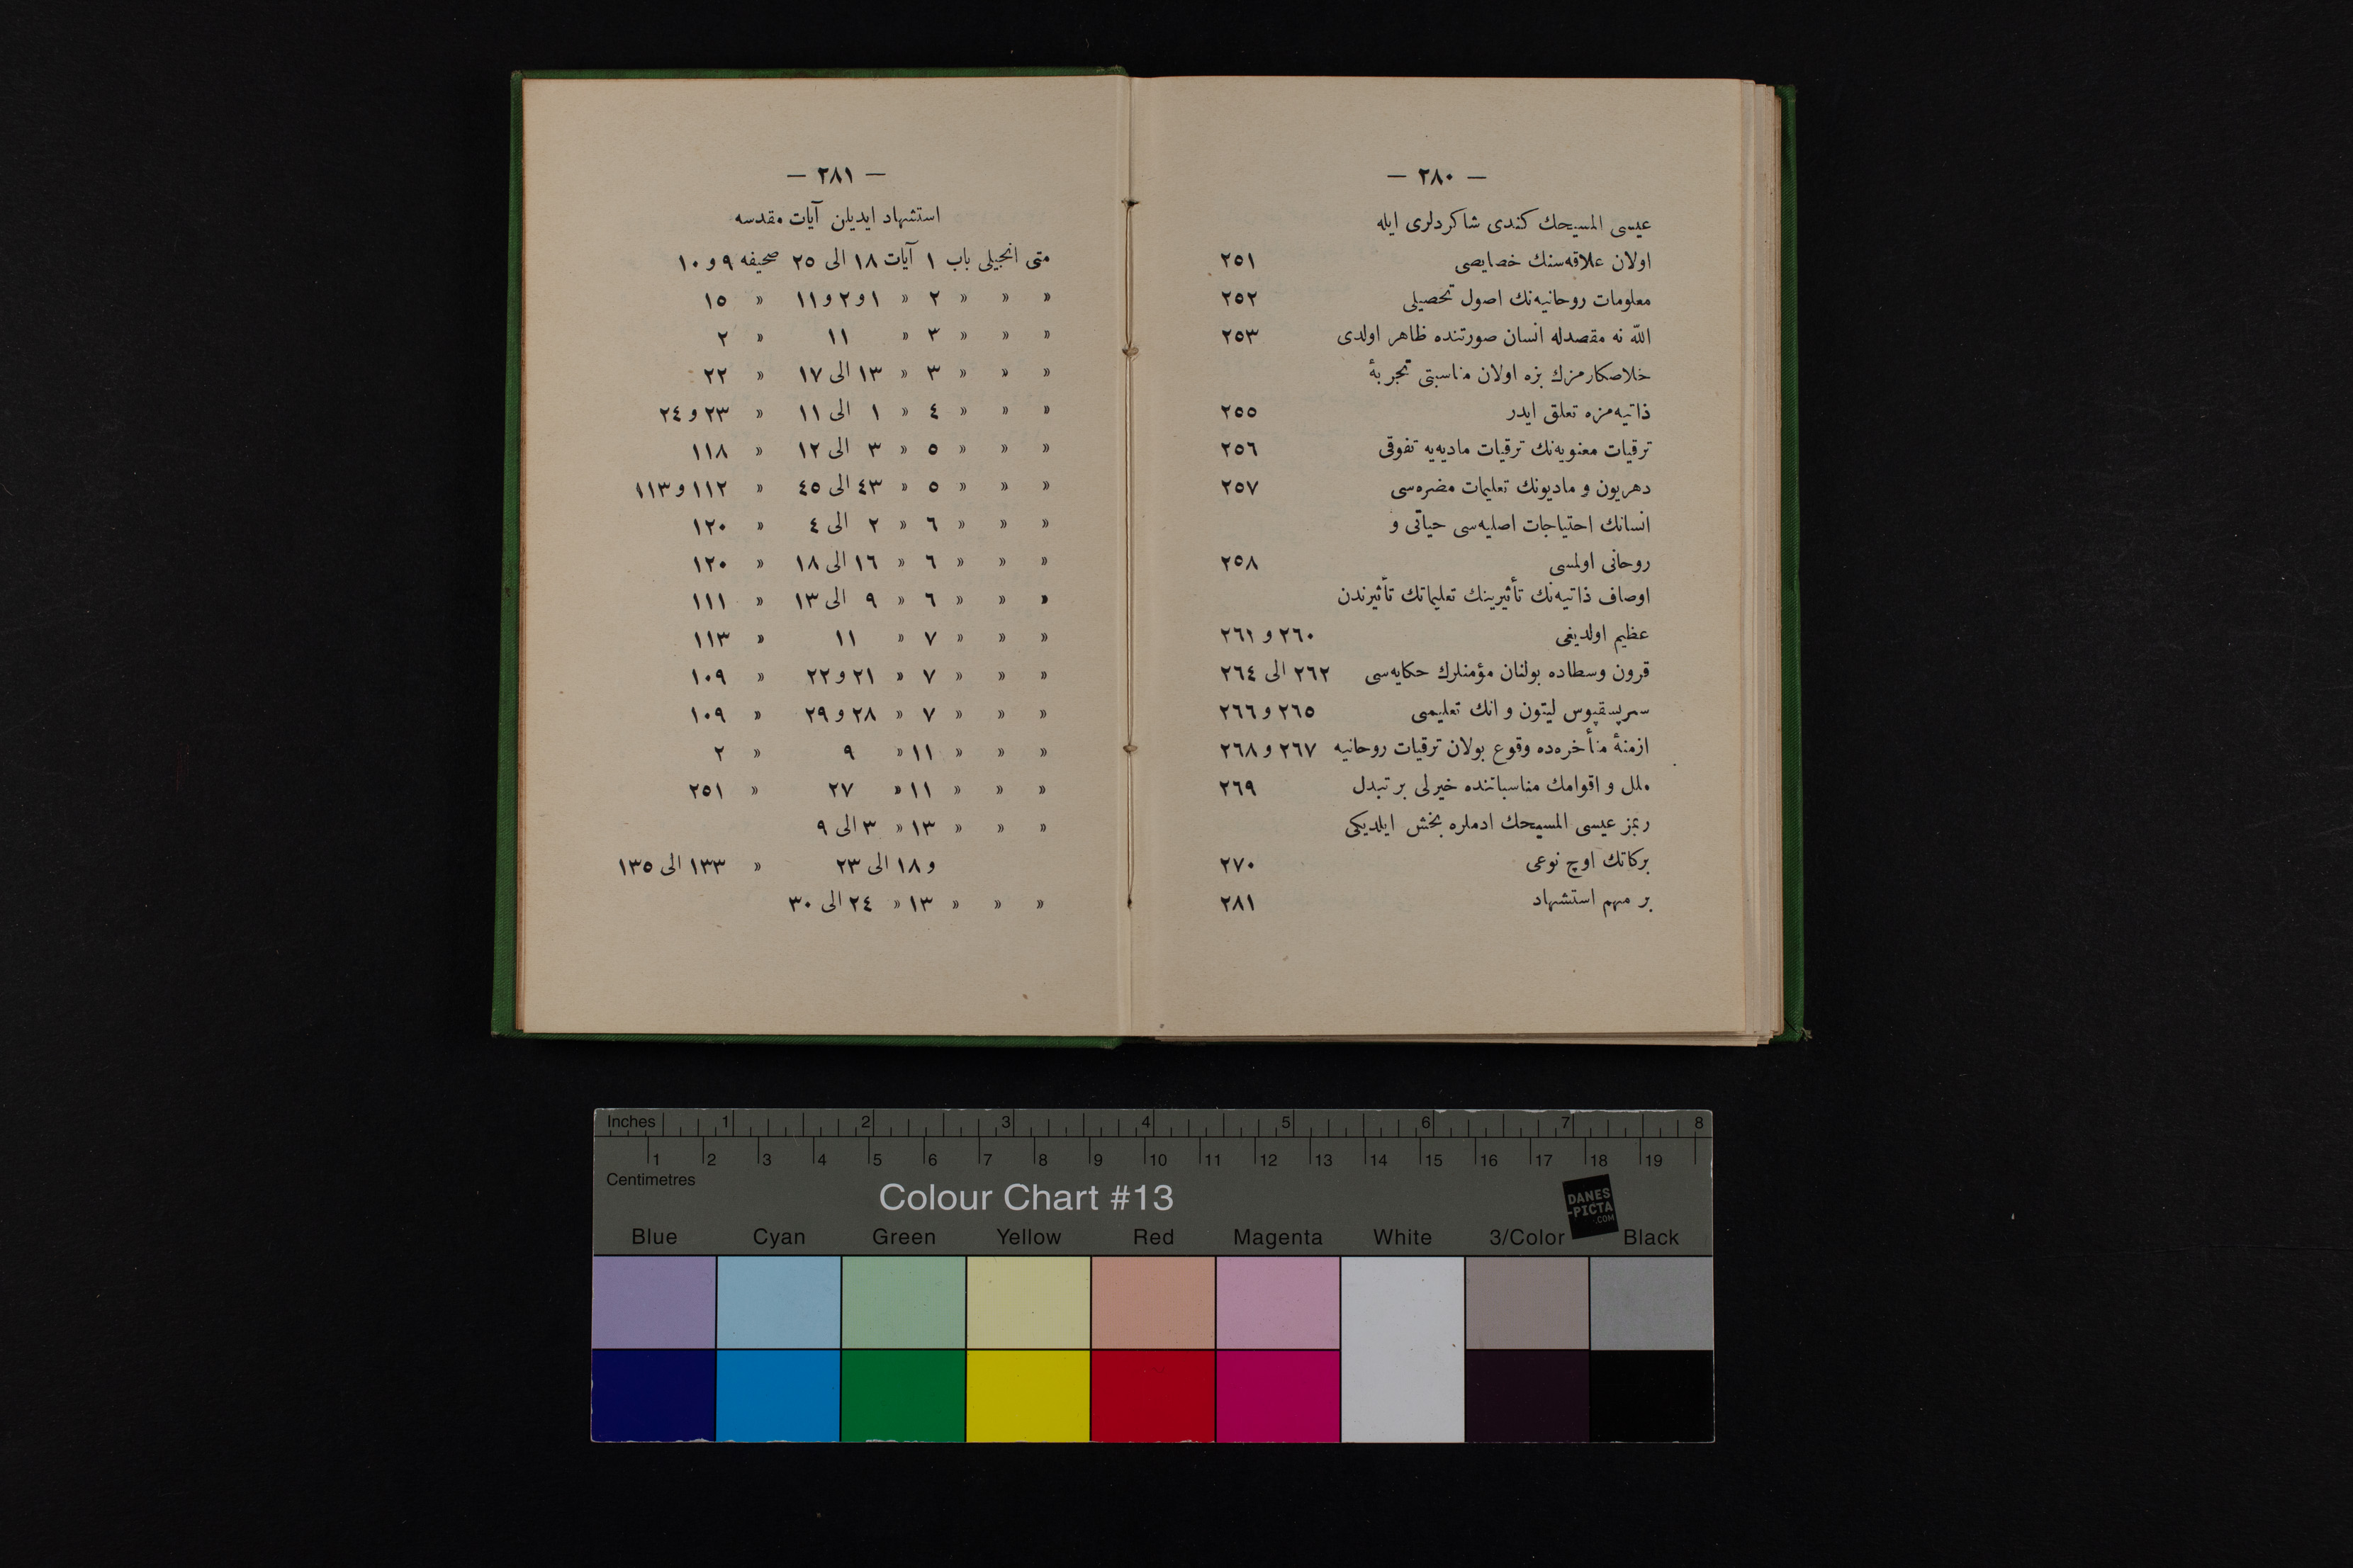 — ٢٨٠ —
عيسى المسيحك كندى شاكردلرى ايله
اولان علاقه‌سنك خصايصى ٢٥١
معلومات روحانيه‌نك اصول تحصيلى ٢٥٢
اللّٰه نه مقصدله انسان صورتنده ظاهر اولدى ٢٥٣
خلاصكارمزك بزه اولان مناسبتى تجربۀ
ذاتيه‌مزه تعلق ايدر ٢٥٥
ترقيات معنويه‌نك ترقيات ماديه‌يه تفوقى ٢٥٦
دهريون و ماديونك تعليمات مضره‌سى ٢٥٧
انسانك احتياجات اصليه‌سى حياتى و
روحانى اولمسى ٢٥٨
اوصاف ذاتيه‌نك تأثيرينك تعليماتك تأثيرندن
عظيم اولديغى ٢٦٠ و ٢٦١
قرون وسطاده بولنان مؤمنلرك حكايه‌سى ٢٦٢ الى ٢٦٤
سرپسقپوس ليتون و انك تعليمى ٢٦٥ و ٢٦٦
ازمنۀ متأخره‌ده وقوع بولان ترقيات روحانيه ٢٦٧ و ٢٦٨
ملل و اقوامك مناسباتنده خيرلى بر تبدل ٢٦٩
ربمز عيسى المسيحك ادملره بخش ايلديكى
بركاتك اوچ نوعى ٢٧٠
بر مهم استشهاد ٢٨١
— ٢٨١ —
استشهاد ايديلن آيات مقدسه
متى انجيلى باب ١ آيات ١٨ الى ٢٥ صحيفه ٩ و ١٠
» » » ٢ » ١ و ٢ و ١١ » ١٥
» » » ٣ » ١١ » ٢
» » » ٣ » ١٣ الى ١٧ » ٢٢
» » » ٤ » ١ الى ١١ » ٢٣ و ٢٤
» » » ٥ » ٣ الى ١٢ » ١١٨
» » » ٥ » ٤٣ الى ٤٥ » ١١٢ و ١١٣
» » » ٦ » ٢ الى ٤ » ١٢٠
» » » ٦ » ١٦ الى ١٨ » ١٢٠
» » » ٦ » ٩ الى ١٣ » ١١١
» » » ٧ » ١١ » ١١٣
» » » ٧ » ٢١ و ٢٢ » ١٠٩
» » » ٧ » ٢٨ و ٢٩ » ١٠٩
» » » ١١ » ٩ » ٢
» » » ١١ » ٢٧ » ٢٥١
» » » ١٣ » ٣ الى ٩
و ١٨ الى ٢٣ » ١٣٣ الى ١٣٥
» » » ١٣ » ٢٤ الى ٣٠
Inches 1 2 3 4 5 6 7 8
1 2 3 4 5 6 7 8 9 10 11 12 13 14 15 16 17 18 19
Centimetres
Colour Chart #13
DANES
-PICTA
.COM
Blue Cyan Green Yellow Red Magenta White 3/Color Black